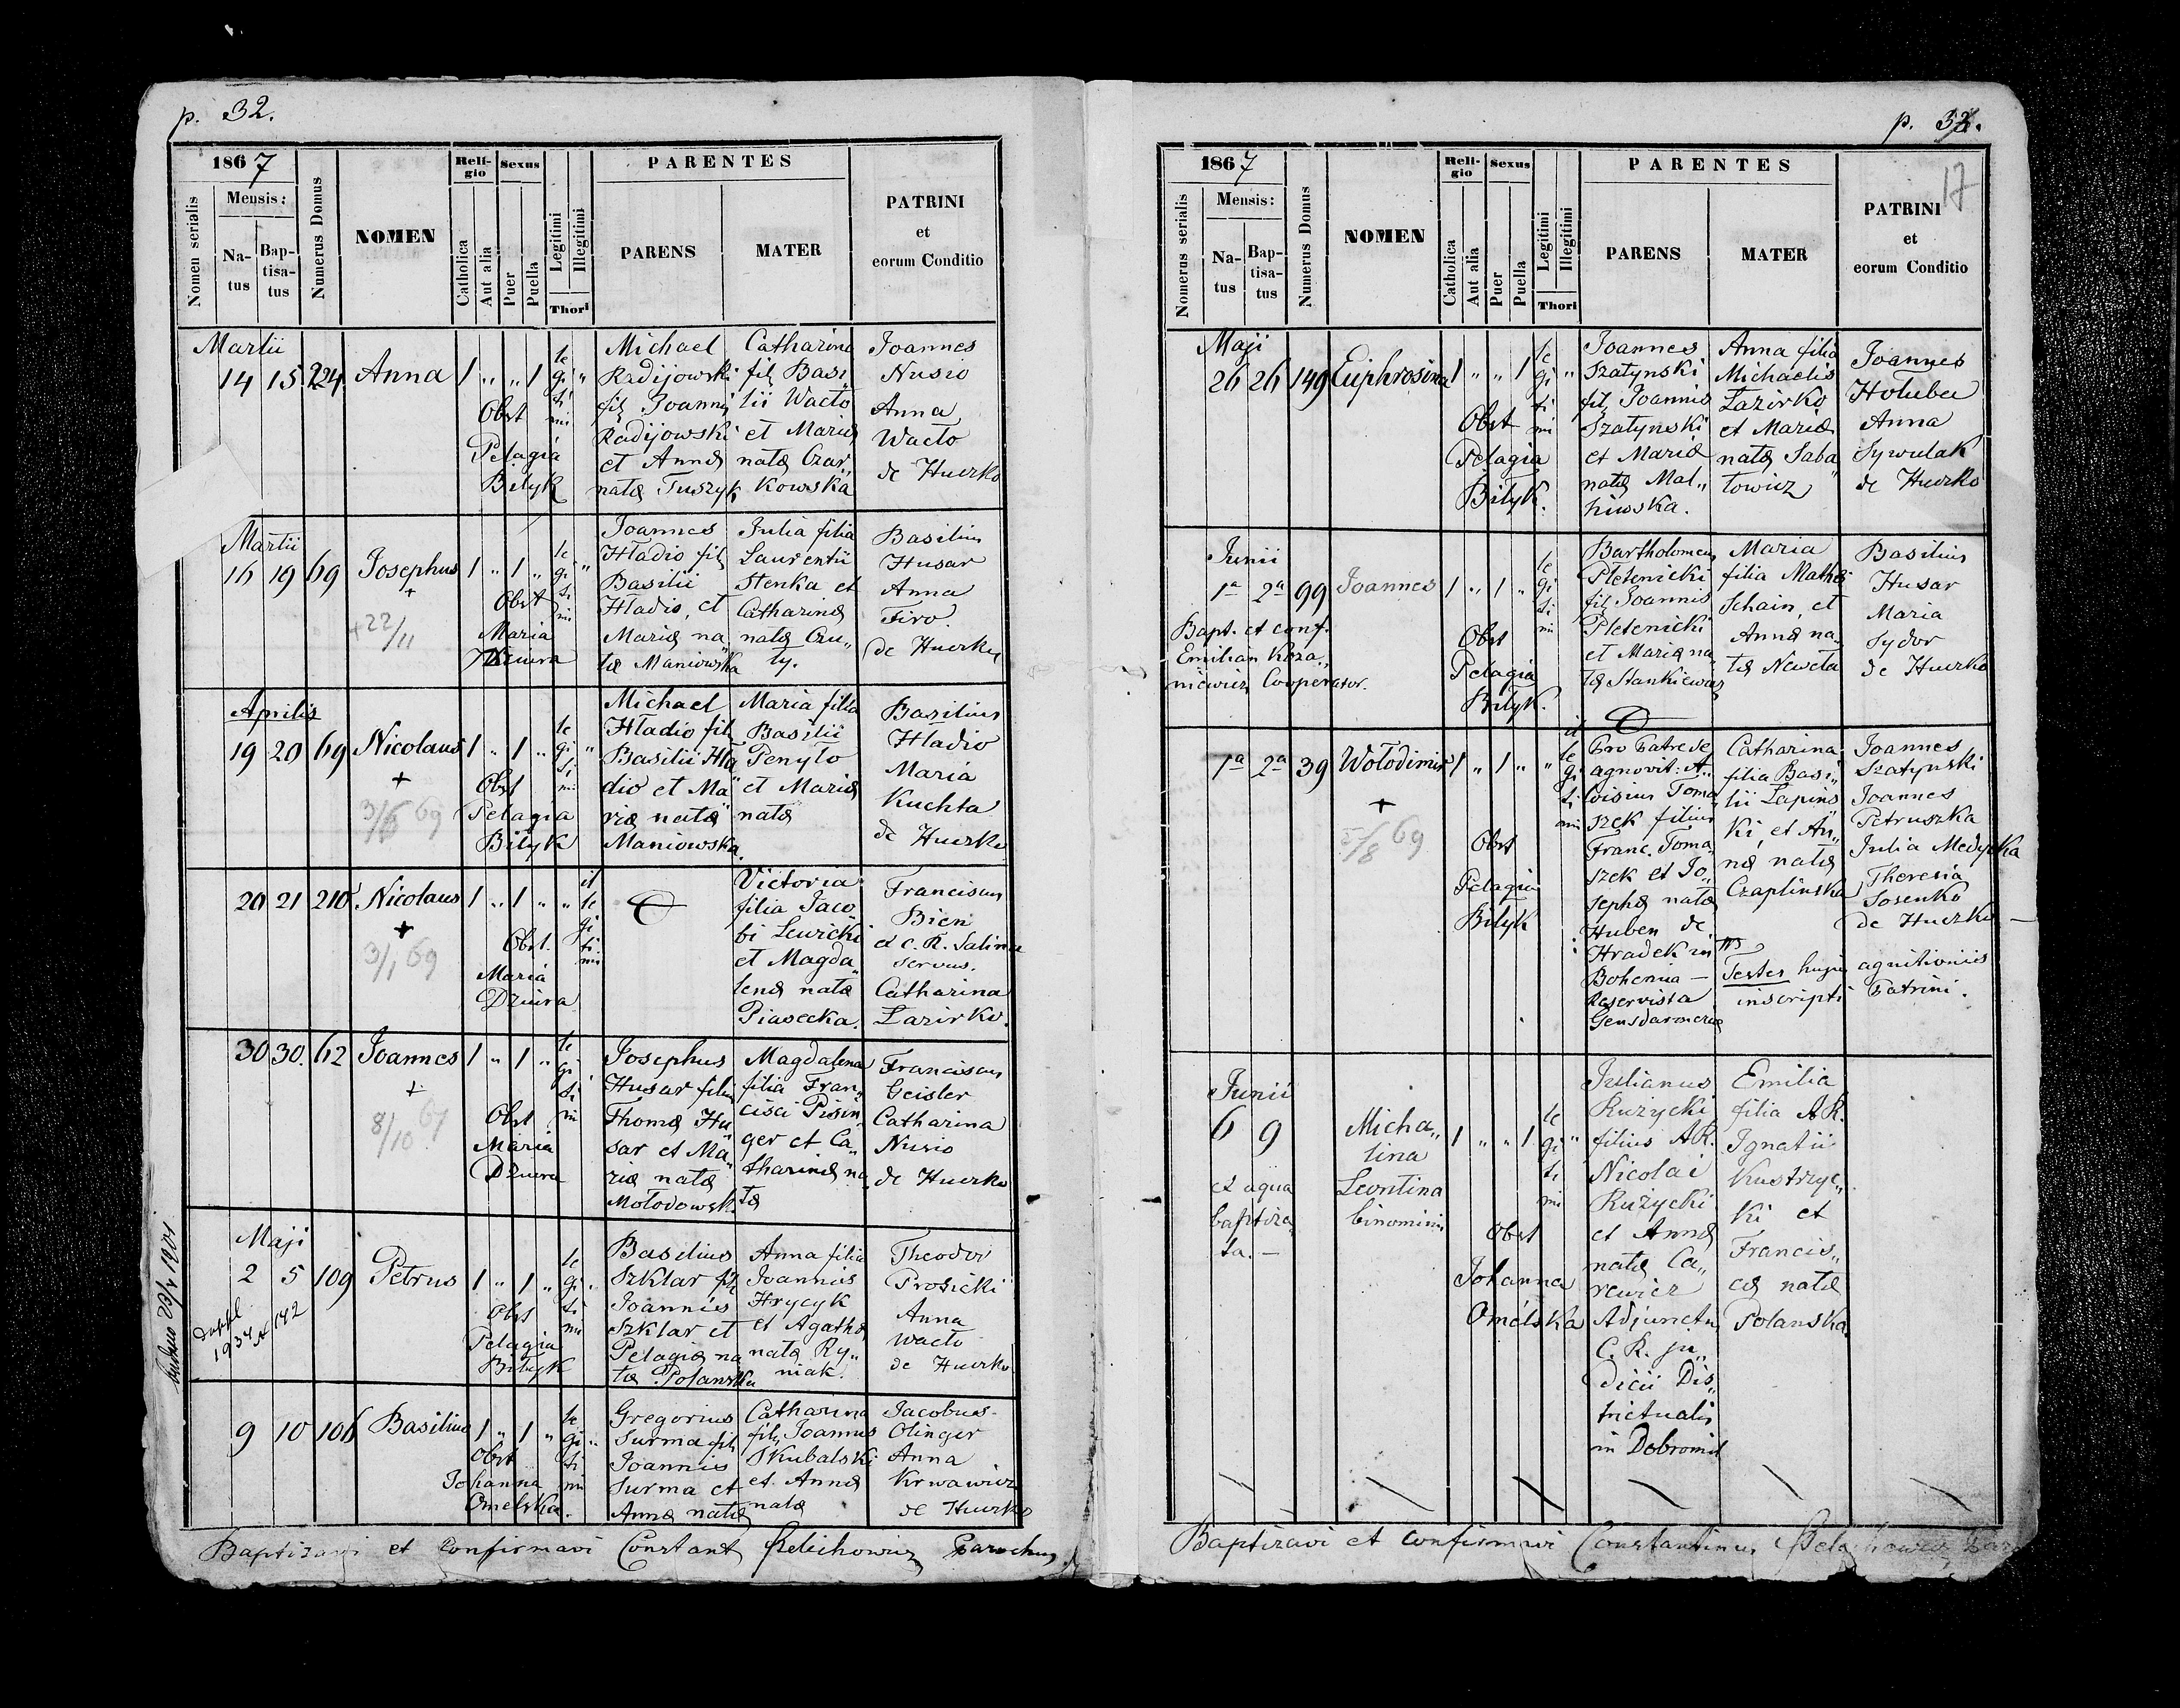 p. 32.
1867
Nomen serialis
Mensis:
Na-
tus
Bap-
tisa-
tus
Numerus Domus
NOMEN
Reli-
gio
Catholica
Aut alia
Sexus
Puer
Puella
Legitimi
Illegitimi
Thori
PARENTES
PARENS
MATER
PATRINI
et
eorum Conditio
Martii
14 15 224. Anna 1 " " 1
le
gi "
ti
mi
Obst
Pelagia
Bilyk
Michael
Radijowski
fil. Joannis
Radijowski
et Annæ
natæ Tuszyk
Catharina
fil. Basi„
lii Wacto
et Mariæ
natæ Czar„
kowska
Joannes
Nusio
Anna
Wacto
de Huczko
Martii
16 19 69 Josephus 1 " 1 "
+
+22/11
le
gi "
ti
mi
Obst
Maria
Dziura
Joannes
Hladio fil.
Basilii
Hladio, et
Mariæ na„
tæ Maniowska
Julia filia
Laurentii
Stenka et
Catharinæ
natæ Czu„
ty.
Basilius
Husar
Anna
Firo.
de Huczko
Aprilis
19 20 69 Nicolaus 1 " 1 "
+
3/6 69
le
gi "
ti
mi
Obst
Pelagia
Bilyk
Michael
Hladio fil.
Basilii Hla„
dio et Ma„
riæ natæ
Maniowska.
Maria filia
Basilii
Penylo
et Mariæ
natæ
Basilius
Hladio
Maria
Kuchta
de Huczko
20 21 210 Nicolaus 1 " 1 " "
+
3/1 69
il
le
gi
ti
mi
Obst.
Maria
Dziura
Victoria
filia Jaco
bi Lewicki
et Magda„
lenæ natæ
Piasecka.
Franciscus
Bien
a C. R. Salina
servus.
Catharina
Lazirko.
30 30. 62 Joannes 1 " 1 "
+
8/10 67
le
gi
ti
mi
Obst
Maria
Dziura
Josephus
Husar filius
Thomæ Hu„
sar et Ma„
riæ natæ
Molodowsk.
Magdalena
filia Fran„
cisci Pisin„
ger et Ca„
tharinæ na„
tæ
Franciscus
Geisler
Catharina
Nusio
de Huczko
Maji
2 5 109 Petrus 1 " 1 "
1934 142
le
gi "
ti
mi
Obst
Pelagia
Bilyk
Basilius
Szklar fil.
Joannis
Szklar et
Pelagiæ na
tæ Polanska
Anna filia
Joannis
Hrycyk
et Agathæ
natæ Ry„
niak.
Theodor
Prosicki
Anna
Wacto
de Huczko
9 10 106 Basilius 1 " 1 "
le
gi "
ti
mi
Obst
Johanna
Omelska.
Gregorius
Surma fil.
Joannis
Surma et
Annæ natæ
Catharina
fil. Joannis
Skubalski
et Annæ
natæ
Jacobus
Olinger
Anna
Krwawicz
de Huczko
Baptizavi et confirmavi Constant. Parochus.
p. 32.
17
1867
Nomerus serialis
Mensis:
Na-
tus
Bap-
tisa-
tus
Numerus Domus
NOMEN
Reli-
gio
Catholica
Aut alia
Sexus
Puer
Puella
Legitimi
Illegitimi
Thori
PARENTES
PARENS
MATER
PATRINI
et
eorum Conditio
Maji
26 26 149 Euphrosina 1 " " 1
le
gi "
ti
mi
Obst
Pelagia
Bilyk.
Joannes
Szatynski
fil. Joannis
Szatynski
et Mariæ
natæ Mal„
hiwska.
Anna filia
Michaelis
Lazirko
et Mariæ
natæ Saba„
towicz
Joannes
Holubec
Anna
Sywulak
de Huczko
Junii
1a 2a 99 Joannes 1 " 1 "
Bapt. et conf.
Emilian Koza„
niewicz Cooperator.
le
gi
ti
mi
Obst
Pelagia
Bilyk.
Bartholomeus
Pletenicki
fil. Joannis
Pletenicki
et Mariæ na„
tæ Stankiewicz
Maria
filia Mathei
Schain, et
Annæ na„
tæ Neweta
Basilius
Husar
Maria
Sydor
de Huczko
1a 2a 39 Wolodimir 1 " 1 " "
+
5/8 69
il
le
gi
ti
mi
Obst
Pelagia
Bilyk
Pro Patre se
agnovit: A„
loisius Toma„
szek filius
Franc. Toma„
szek et Jo„
sephæ natæ
Huben de
Hradek in
Bohemia —
Reservista
Gensdarmeriæ
Catharina
filia Basi„
lii Lapins„
ki, et An„
næ natæ
Czaplinska
Joannes
Szatynski
Joannes
Petruszka
Julia Medycka
Theresia
Sosenko
de Huczko —
Testes hujus agnitionis
inscripti Patrini.
Junii
6 9
et aqua
baptiza„
ta. —
Micha„
lina
Leontina
binominis
1 " " 1
le
gi "
ti
mi
Obst
Johanna
Omelska
Julianus
Ruzycki
filius A.R.
Nicolai
Ruzycki
et Annæ
natæ Ca„
rewicz
Adjunctus
C. R. ju„
dicii Dis„
trictualis
in Dobromil
Emilia
filia A.R.
Ignatii
Kustrzyc„
ki et
Francis„
cæ natæ
Polanska.
Baptizavi et confirmavi Constantinus